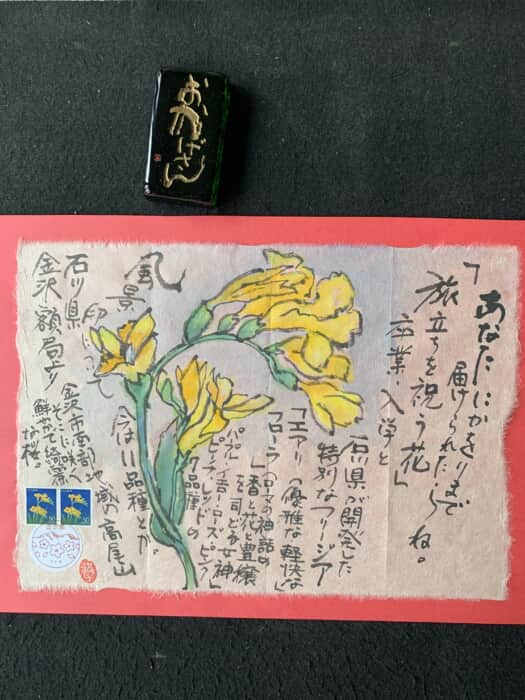 おかげさん
「あなたにかをりまで
届けられたらね。
旅立ちを祝う花」
卒業・入学と
石川県が開発した
特別なフリージア
「エアリー(優雅な軽快な)
フローラ(ローマの神話の
春と花と豊穣
を司どる女神」
パープル・イエロー・ローズ・ピンク
ピーチ・レッドの
7品種
今は11品種とか。
風景印にて
石川県
金沢額局より
金沢市南部地域の高尾山
そこに咲く
鮮やかで綺麗
な桜。